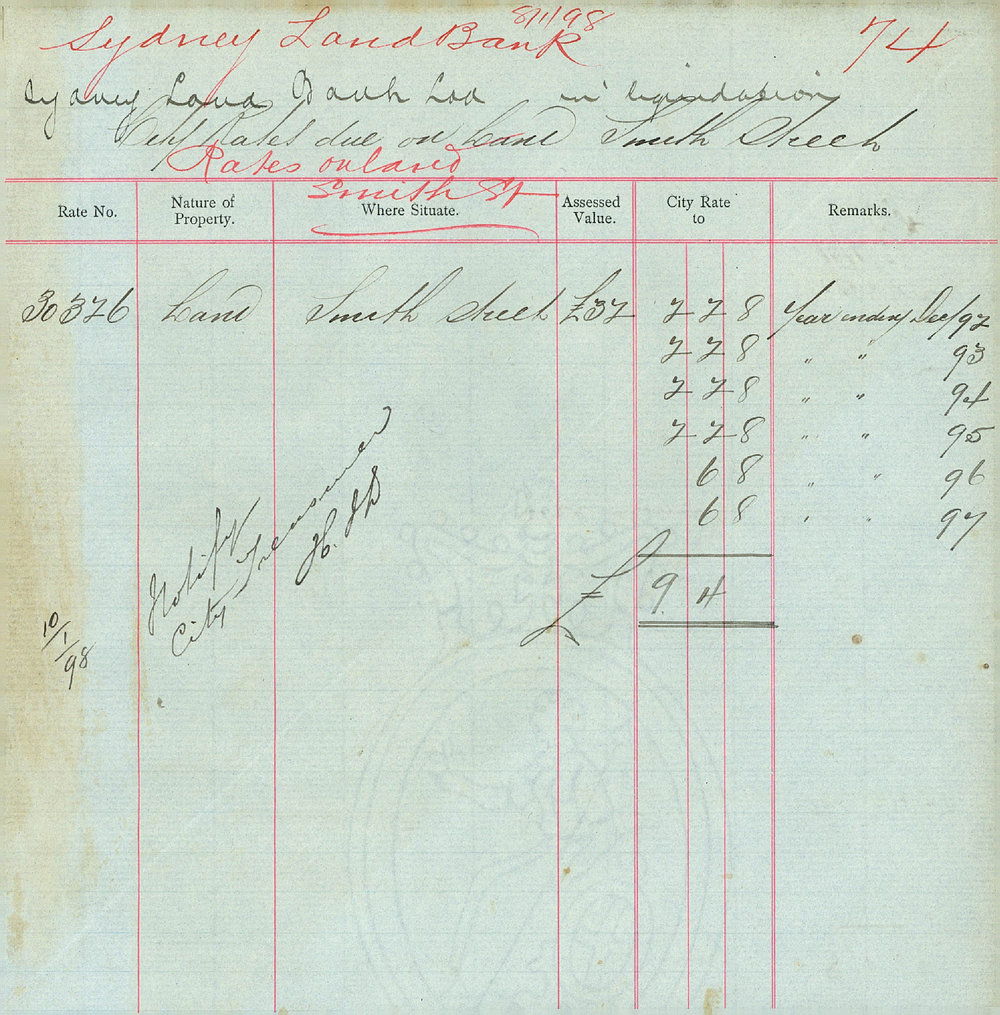 8/1/98
Sydney Land Bank 74
Sydney Land Bank Ltd in liquidation
City Rates due on Land Smith Street
Rates on land
Smith St
Rate No. Nature of Property. Where Situate. Assessed Value. City Rate to Remarks.
30326 Land Smith Street £32 2 2 8 Year ending Dec/92
2 2 8 " " 93
2 2 8 " " 94
2 2 8 " " 95
6 8 " " 96
6 8 " " 97
£ 9. 4
Notify
City Treasurer
10/1/98